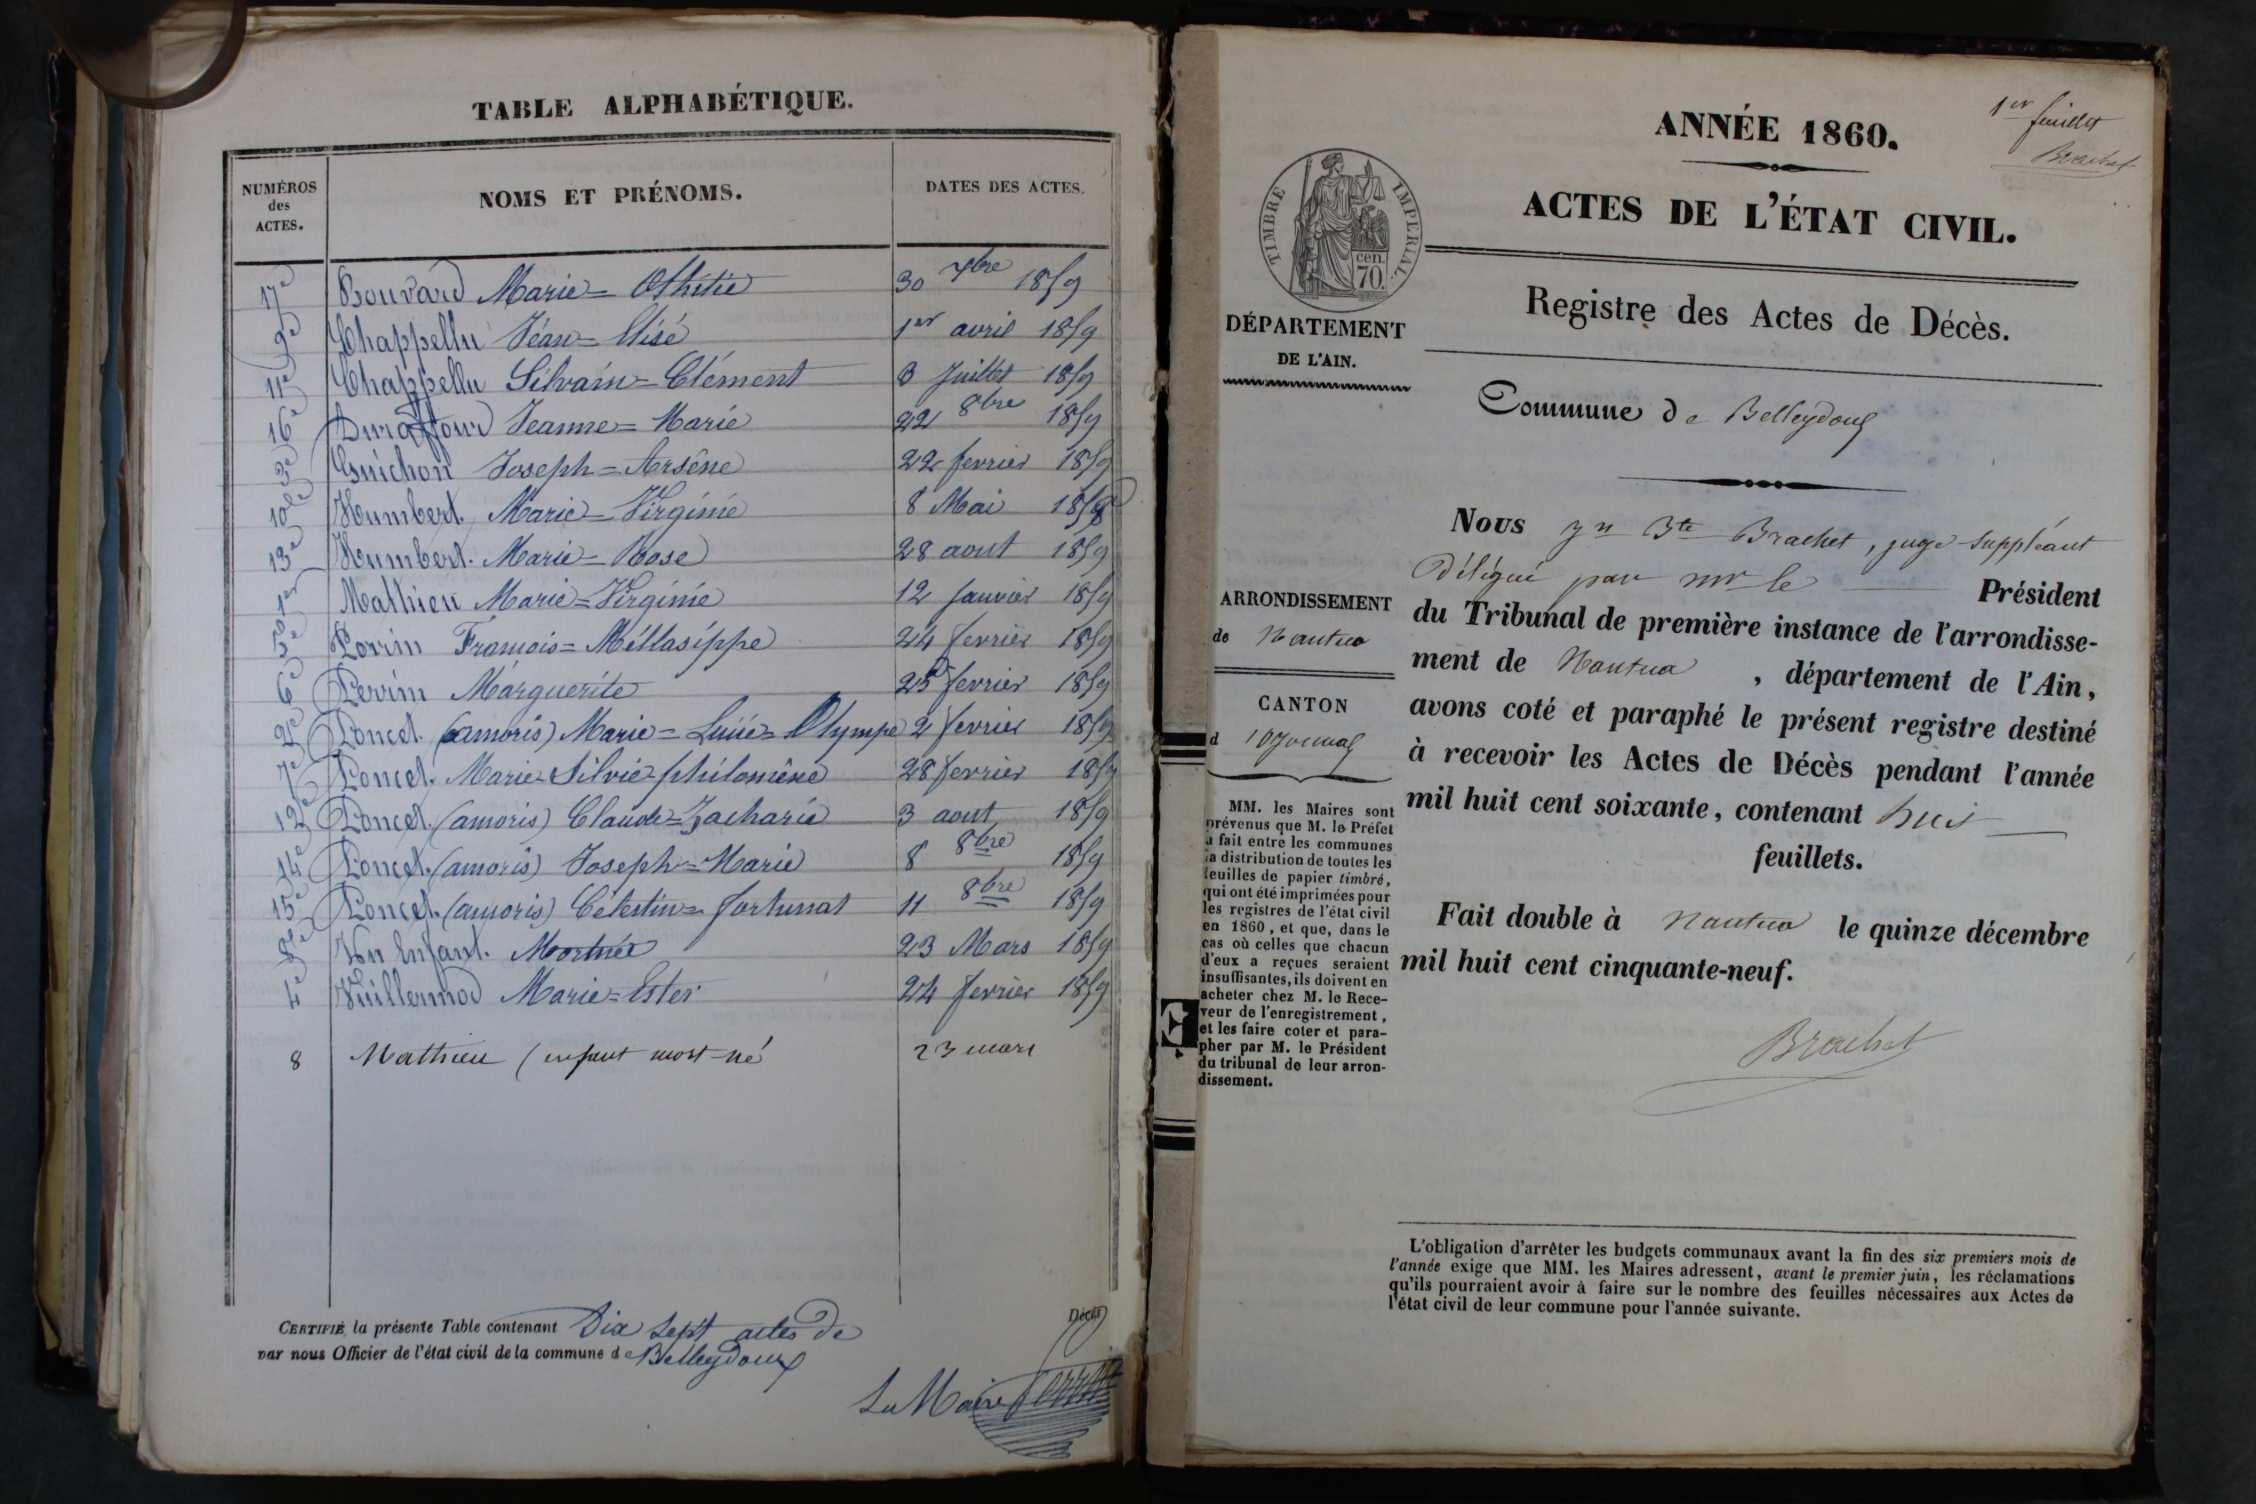 TABLE ALPHABÉTIQUE.
NUMÉROS
des
ACTES.
NOMS ET PRÉNOMS.
DATES DES ACTES.
17e Bouvard Marie= 30 7bre 1859
9e Chappellu Jéan= Elisé 1er avril 1859
11e Chappellu Silvain=Clément 3 Juillet 1859
16e Duraffourd Jeanne=Marie 22 8bre 1859
3e Guichon Joseph=Arsène 22 fevrier 1859
10e Humbert. Marie=Virginie 8 Mai 1859
13e Humbert. Marie=Rose 28 aout 1859
1er Mathieu Marie=Virginie 12 janvier 1859
5e Perrin François= 24 fevrier 1859
6e Perrin Marguerite 25 fevrier 1859
2e Poncet. (amoris) Marie= =Olympe 2 fevrier 1859
7e Poncet. Marie=Silvie=philomène 28 fevrier 1859
12e Poncet. (amoris) Claude=Zacharie 3 aout 1859
14e Poncet. (amoris) Joseph=Marie 8 8bre 1859
15e Poncet. (amoris) Célestin=fortunat 11 8bre 1859
8e Un Enfant. Mortnée 23 Mars 1859
4e Vuillermod Marie=Ester 24 fevrier 1859
8 Mathieu (enfant mort-né 23 mars
CERTIFIÉ la présente Table contenant Dix sept actes de Décès
par nous Officier de l'état civil de la commune de Belleydoux
Le Maire
1er feuillet
Brachet
ANNÉE 1860.
ACTES DE L'ÉTAT CIVIL.
TIMBRE IMPERIAL.
cen.
70.
DÉPARTEMENT
DE L'AIN.
Registre des Actes de Décès.
Commune de Belleydoux
ARRONDISSEMENT
de Nantua
CANTON
d'Oyonnax
MM. les Maires sont
prévenus que M. le Préfet
a fait entre les communes
la distribution de toutes les
feuilles de papier timbré,
qui ont été imprimées pour
les registres de l'état civil
en 1860, et que, dans le
cas où celles que chacun
d'eux a reçues seraient
insuffisantes, ils doivent en
acheter chez M. le Rece-
veur de l'enregistrement,
et les faire coter et para-
pher par M. le Président
du tribunal de leur arron-
dissement.
Nous Jn Bte Brachet, juge suppléant
Délégué par mr le Président
du Tribunal de première instance de l'arrondisse-
ment de Nantua, département de l'Ain,
avons coté et paraphé le présent registre destiné
à recevoir les Actes de Décès pendant l'année
mil huit cent soixante, contenant huit
feuillets.
Fait double à Nantua le quinze décembre
mil huit cent cinquante-neuf.
Brachet
L'obligation d'arrêter les budgets communaux avant la fin des six premiers mois de
l'année exige que MM. les Maires adressent, avant le premier juin, les réclamations
qu'ils pourraient avoir à faire sur le nombre des feuilles nécessaires aux Actes de
l'état civil de leur commune pour l'année suivante.